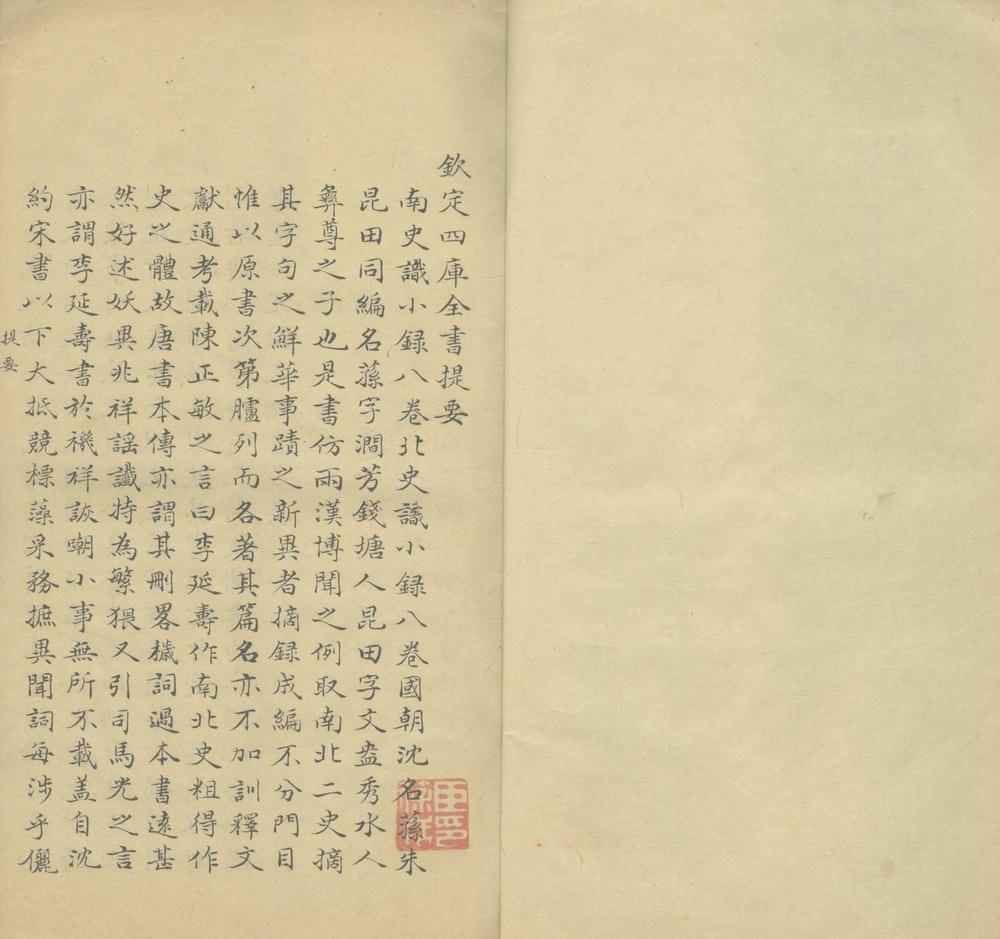 欽定四庫全書提要
南史識小録八卷北史識小録八卷國朝沈名蓀朱
昆田同編名蓀字澗芳錢塘人昆田字文盎秀水人
彝尊之子也是書仿兩漢博聞之例取南北二史摘
其字句之鮮華事蹟之新異者摘録成編不分門目
惟以原書次第臚列而各著其篇名亦不加訓釋文
獻通考載陳正敏之言曰李延壽作南北史粗得作
史之體故唐書本傳亦謂其刪畧穢詞過本書遠甚
然好述妖異兆祥謡讖特為繁猥又引司馬光之言
亦謂李延壽書於禨祥詼嘲小事無所不載盖自沈
約宋書以下大抵競標藻采務摭異聞詞每涉乎儷
提要